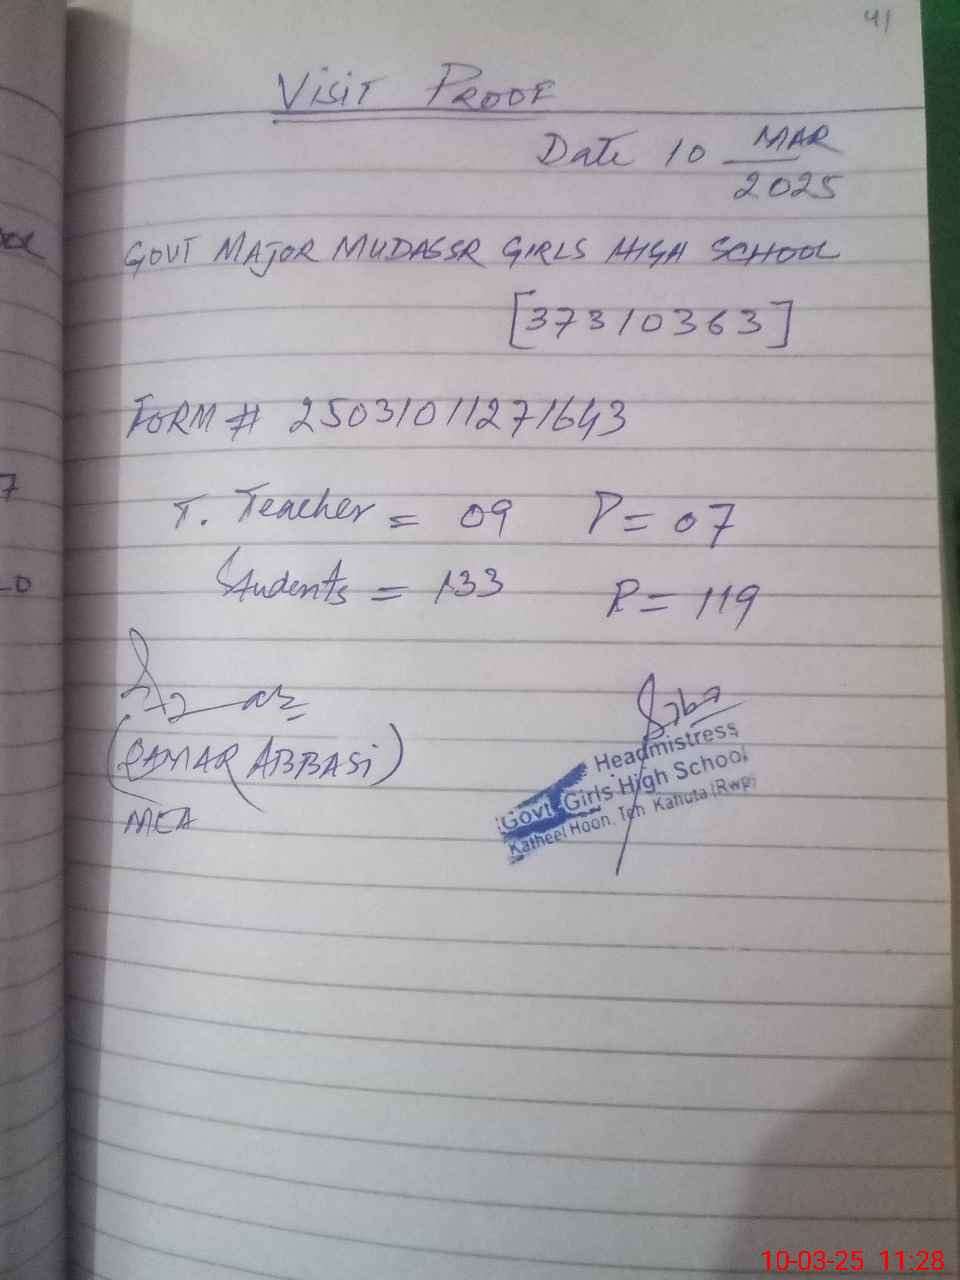 41
VISIT PROOF
Date 10 MAR
2025
GOVT MAJOR MUDASSR GIRLS HIGH SCHOOL
[37310363]
FORM # 25031011271643
T. Teacher = 09 P = 07
Students = 133 P = 119
(QAMAR ABBASI)
MEA
Headmistress
Govt Girls High School
Katheel Hoon, Teh Kahuta (Rwp)
10-03-25 11:28